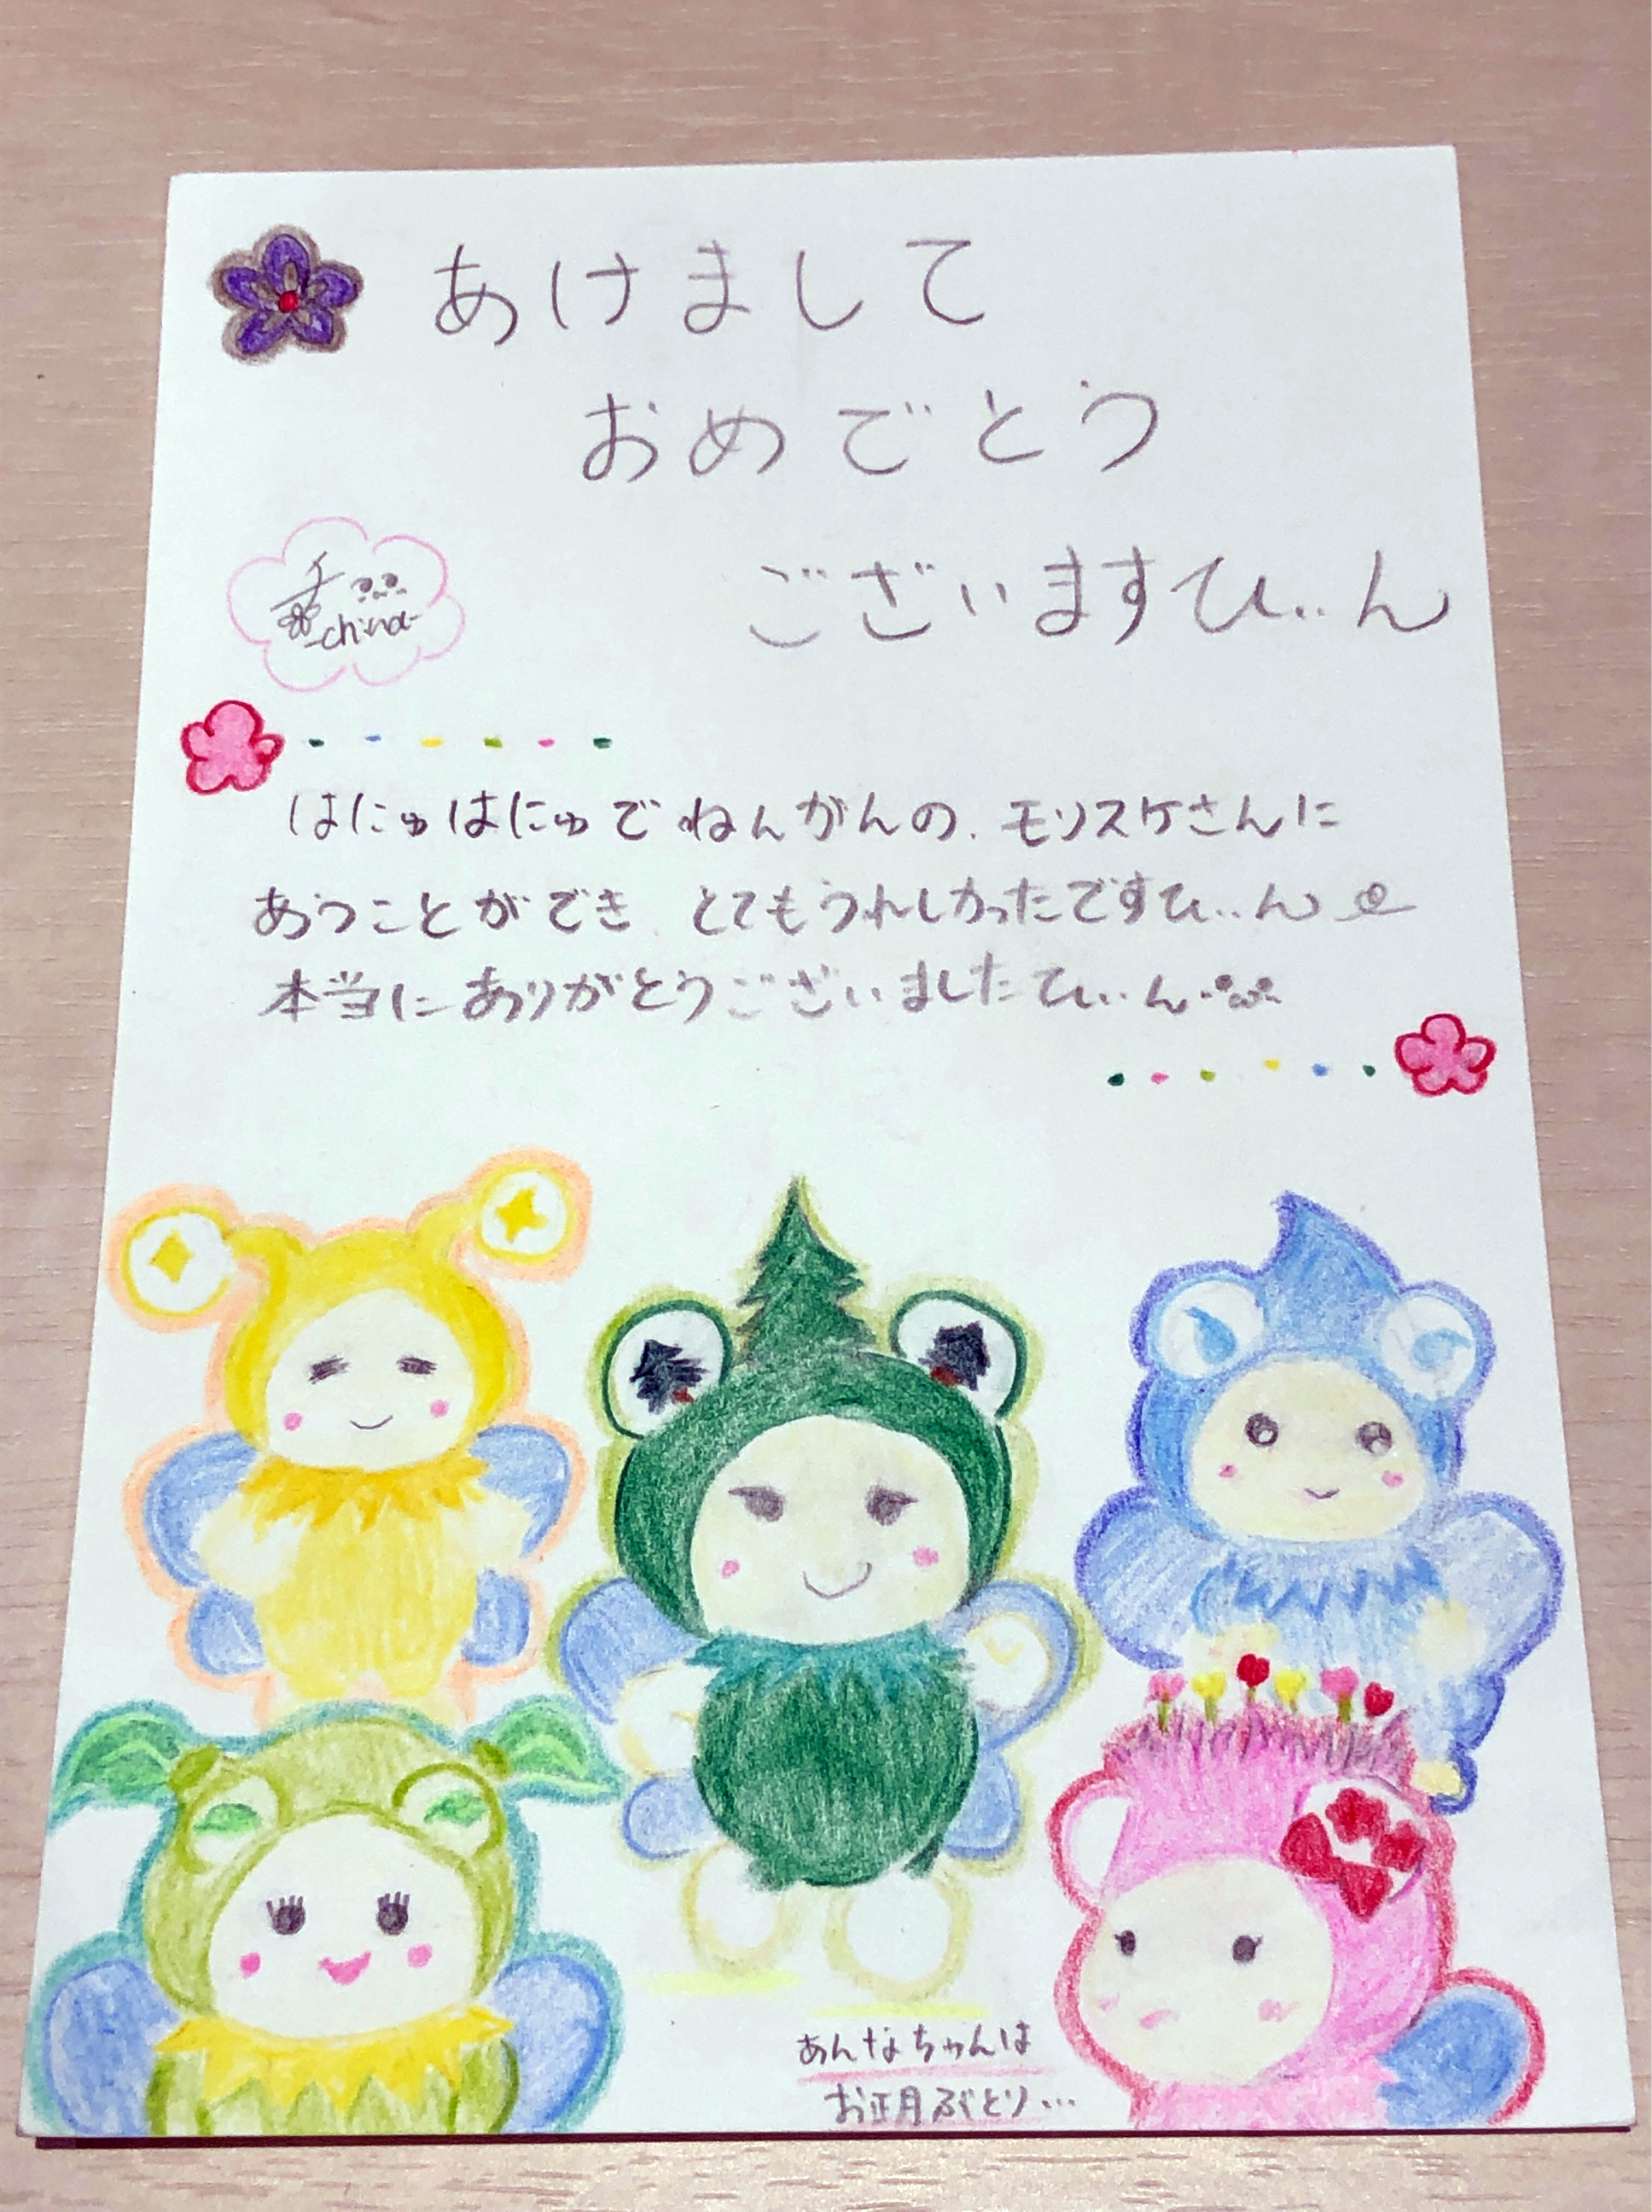 あけまして
おめでとう
ございますひぃ..ん
千奈
-china-
はにゅはにゅでねんがんの、モリスケさんに
あうことができ とてもうれしかったですひぃ..ん
本当にありがとうございましたひぃ..ん
あんなちゃんは
お正月ぶとり...